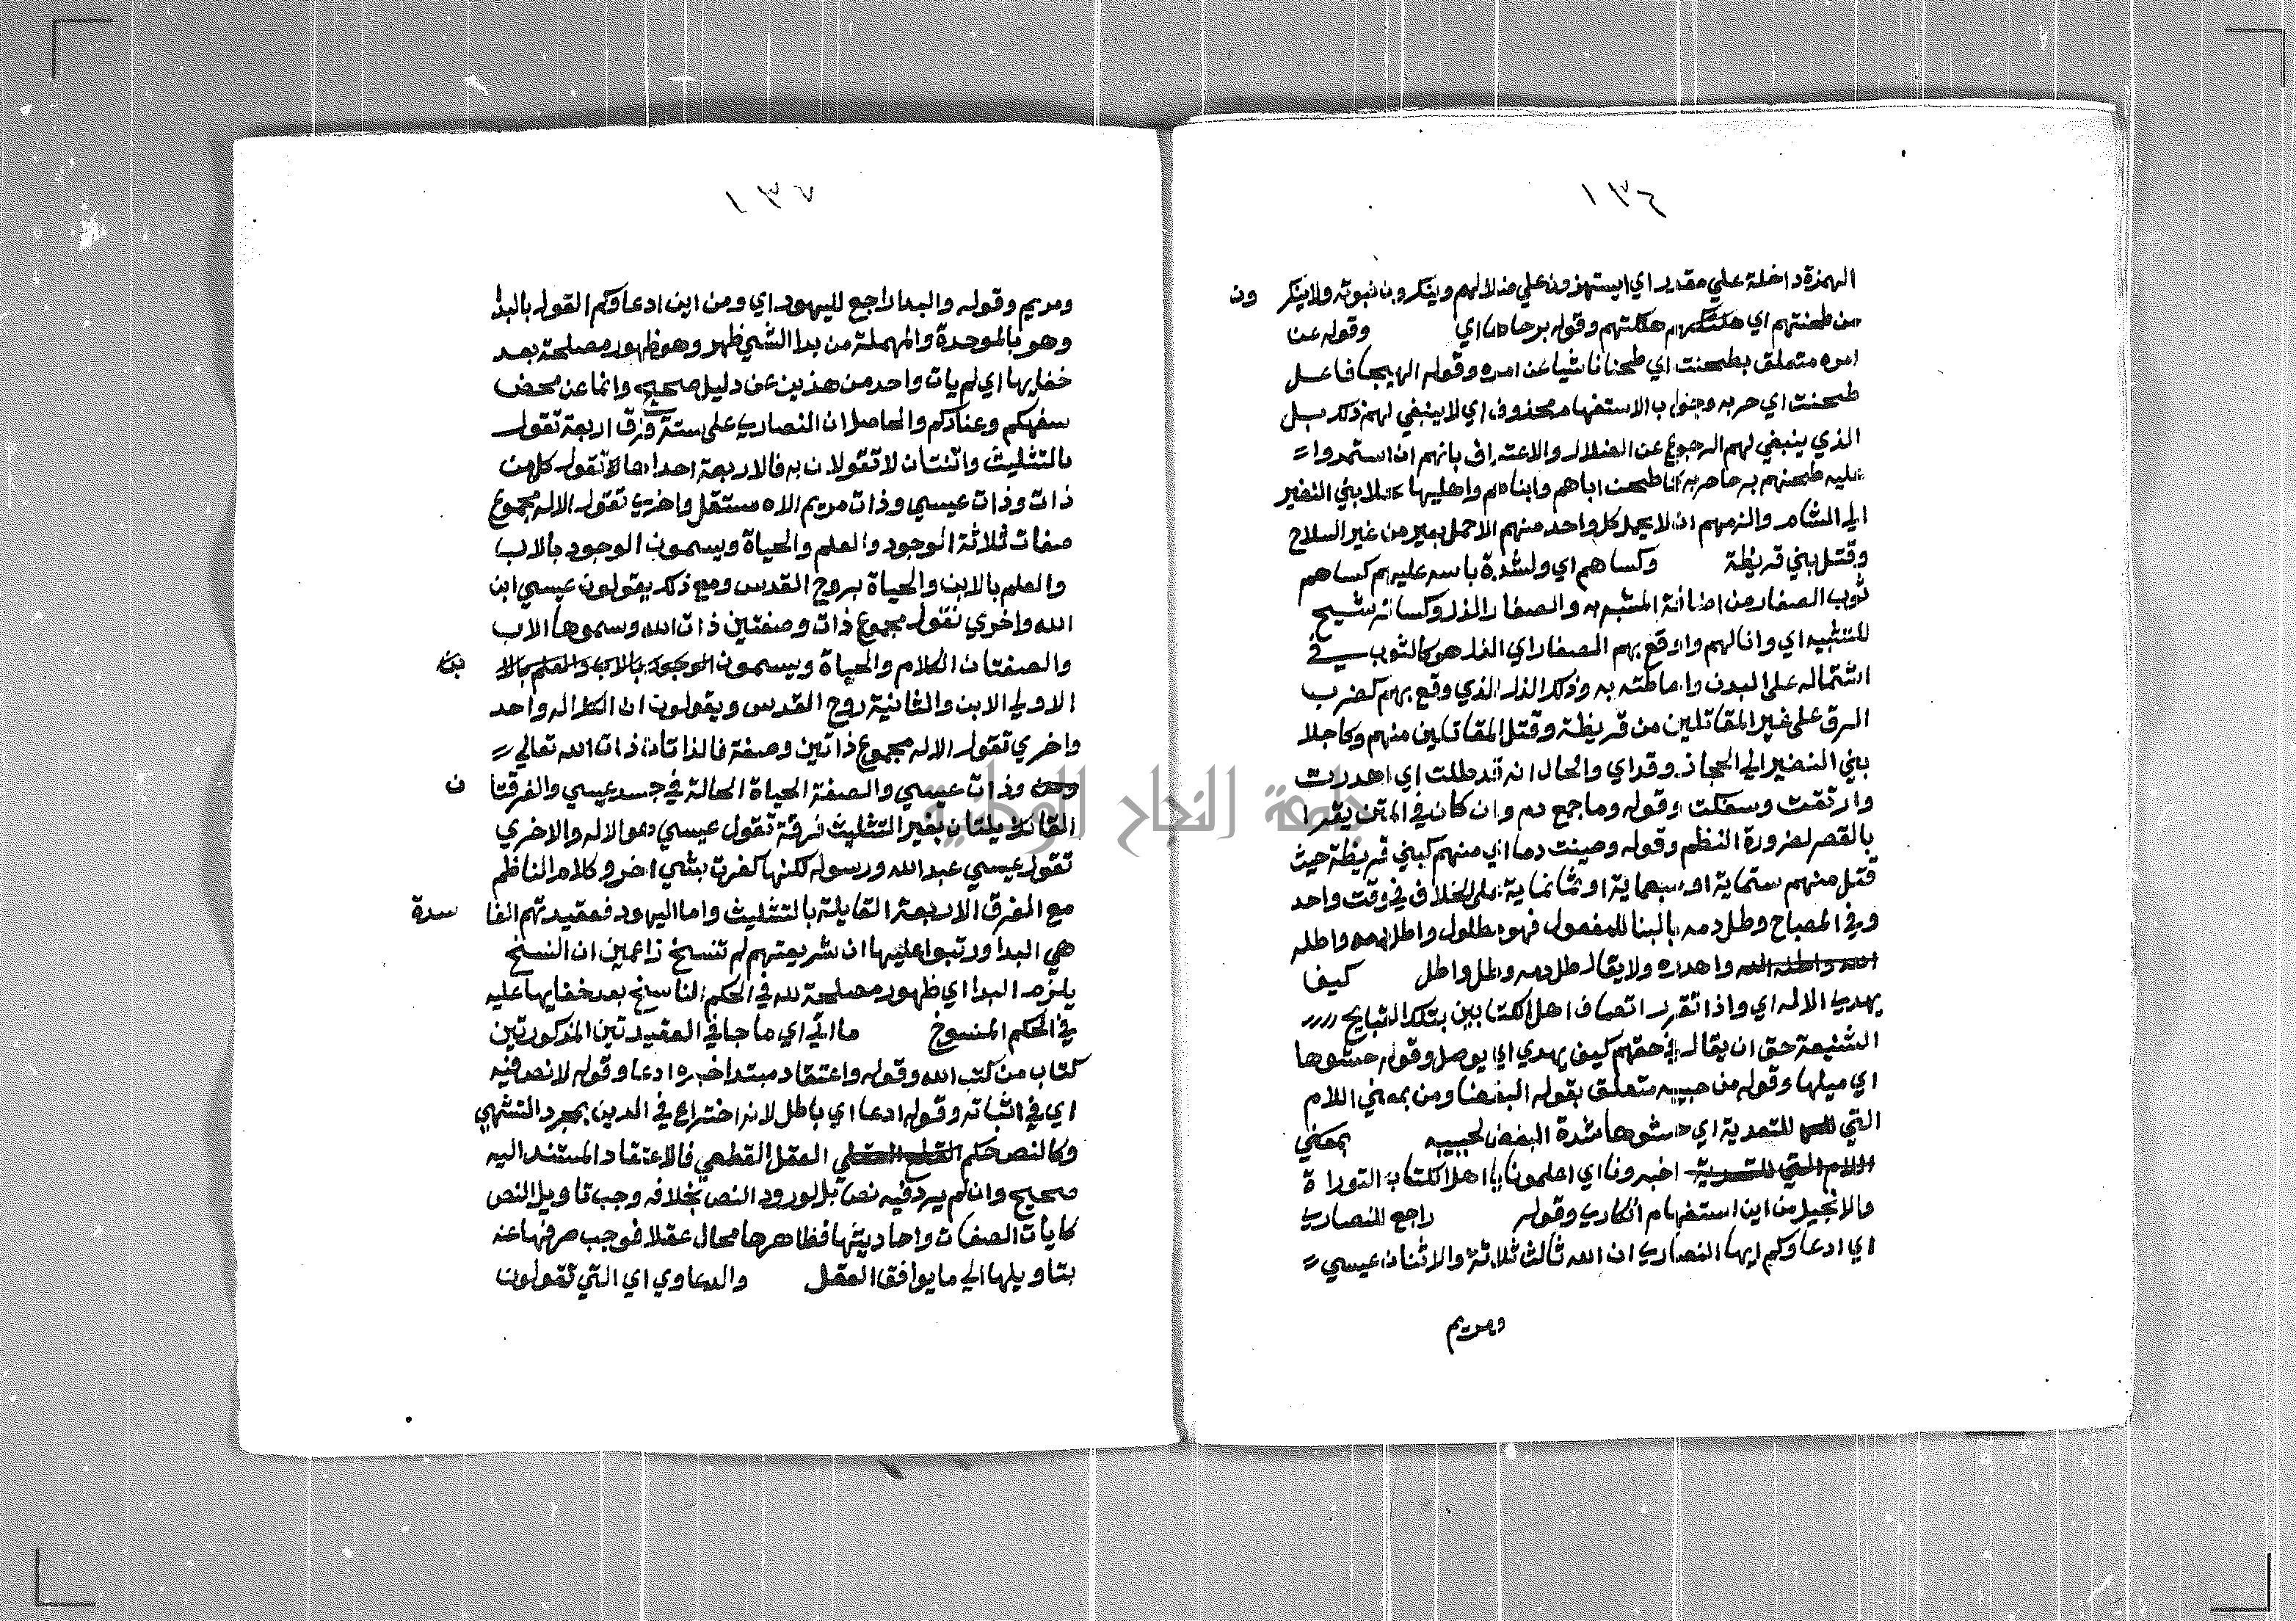 ١٣٦
الهمزة داخلة علي مقدر اي ايستهزون علي ضلالهم وينكرون نبوته ولا ينكرون
من طحنتهم اي هلكتهم وقوله برحاها اي وقوله عن
امره متعلق بطحنت اي طحنا ناشيا عن امره وقوله الهيجا فاعل
طحنت اي حربه وجواب الاستفهام محذوف اي لا ينبغي لهم ذلك بل
الذي ينبغي لهم الرجوع عن الضلال والاعتراف بانهم ان استمروا
عليه طحنتهم برحا حربه كما طحنت اباهم وابناهم واهليها بني النضير
الي الشام والزمهم ان لا يحمل كل واحد منهم الا حمل بعير من غير السلاح
وقتل بني قريظة وكساهم اي ولشدة باسه عليهم كساهم
ثوب الصغار من اضافة المشبه به والصغار الذل وكساته شيح
للتشبيه اي وانالهم واوقع بهم الصغار اي الذل هو كالثوب في
اشتماله علي البدن واحاطته به وذلك الذل الذي وقع بهم كضرب
الرق علي غير المقاتلين من قريظة وقتل المقاتلين منهم وكاجلا
بني النضير الي الحجاز وقد اي والحال انه قد طلت اي اهدرت
وارتقت وسفكت وقوله وما جمع دم وان كان في المتن يقرا
بالقصر لضرورة النظم وقوله وصينت دما اي منهم كبني قريظة حيث
قتل منهم ستماية او سبعماية او ثمانماية علي الخلاف في وقت واحد
وفي المصباح وطل دمه بالبنا للمفعول فهو مطلول واطل واطله
الله واطله الله واهداره ولا يقال طل دمه وطل واطل كيف
يهدي الاله اي واذا تقرر اتصاف اهل الكتابين بتلك القبايح
الشنيعة حق ان يقال في حقهم كيف يهدي اي يوصل وقوله حشوها
اي ميلها وقوله من حبيبه متعلق بقوله البغضا ومن بمعني اللام
التي للتعدية اي حشوها شدة البغض لحبيبه بمعني
اللام التي للتعدية اخبرونا اي اعلمونا يا اهل الكتاب التوراة
والانجيل من اين استفهام انكاري وقوله راجع للنصاري
اي ادعاوكم ايها النصاري ان الله ثالث ثلاثة والاثنان عيسي
ومريم
١٣٧
ومريم وقوله والبدا راجع لليهود اي ومن اين ادعاوكم القول بالبدا
وهو بالموحدة والمهملة من بدا الشي ظهر وهو ظهور مصلحة بعد
خفايها اي لم يات واحد من هذين عن دليل صحيح وانما عن محض
سفهكم وعنادكم والحاصل ان النصاري علي ستة فرق اربعة تقول
بالتثليث واثنتان لا تقولان به فالاربعة احداها تقول كل من
ذات وذات عيسي وذات مريم الاه مستقل واخري تقول الاله مجموع
صفات ثلاثة الوجود والعلم والحياة ويسمون الوجود بالاب
والعلم بالابن والحياة بروح القدس ومع ذلك يقولون عيسي ابن
الله واخري تقول مجموع ذات وصفتين ذات الله وسموها الاب
والصفتان الكلام والحياة ويسمون الوجود بالاب والعلم بالابن
الاولي الابن والثانية روح القدس ويقولون ان الكل اله واحد
واخري تقول الاله مجموع ذاتين وصفة فالذاتان ذات الله تعالي
وذات عيسي والصفة الحياة الحالة في جسد عيسي والفرقتان
القائلتان بغير التثليث فرقة تقول عيسي هو الاله والاخري
تقول عيسي عبد الله ورسوله لكنها كفرت بشي اخر وكلام الناظم
مع الفرق الاربعة القايلة بالتثليث واما اليهود فعقيدتهم الفاسدة
هي البدا ورتبوا عليها ان شريعتهم لم تنسخ زاعمين ان النسخ
يلزم البدا اي ظهور مصلحة لله في الحكم الناسخ بعد خفايها عليه
في الحكم المنسوخ ما اتي اي ما جا في العقيدتين المذكورتين
كتاب من كتب الله وقوله واعتقاد مبتدا خبره ادعا وقوله لا نص فيه
اي في اثباته وقوله ادعا اي باطل لانه اختراع في الدين بمجرد التشهي
وكالنص حكم العقل القطعي فالاعتقاد المستند اليه
صحيح وان لم يرد فيه نص بل لورود النص بخلافه وجب تاويل النص
كايات الصفات واحاديثها فظاهرها محال عقلا فوجب صرفها عنه
بتاويلها الي ما يوافق العقل والدعاوي اي التي تقولون
جامعة النجاح الوطنية